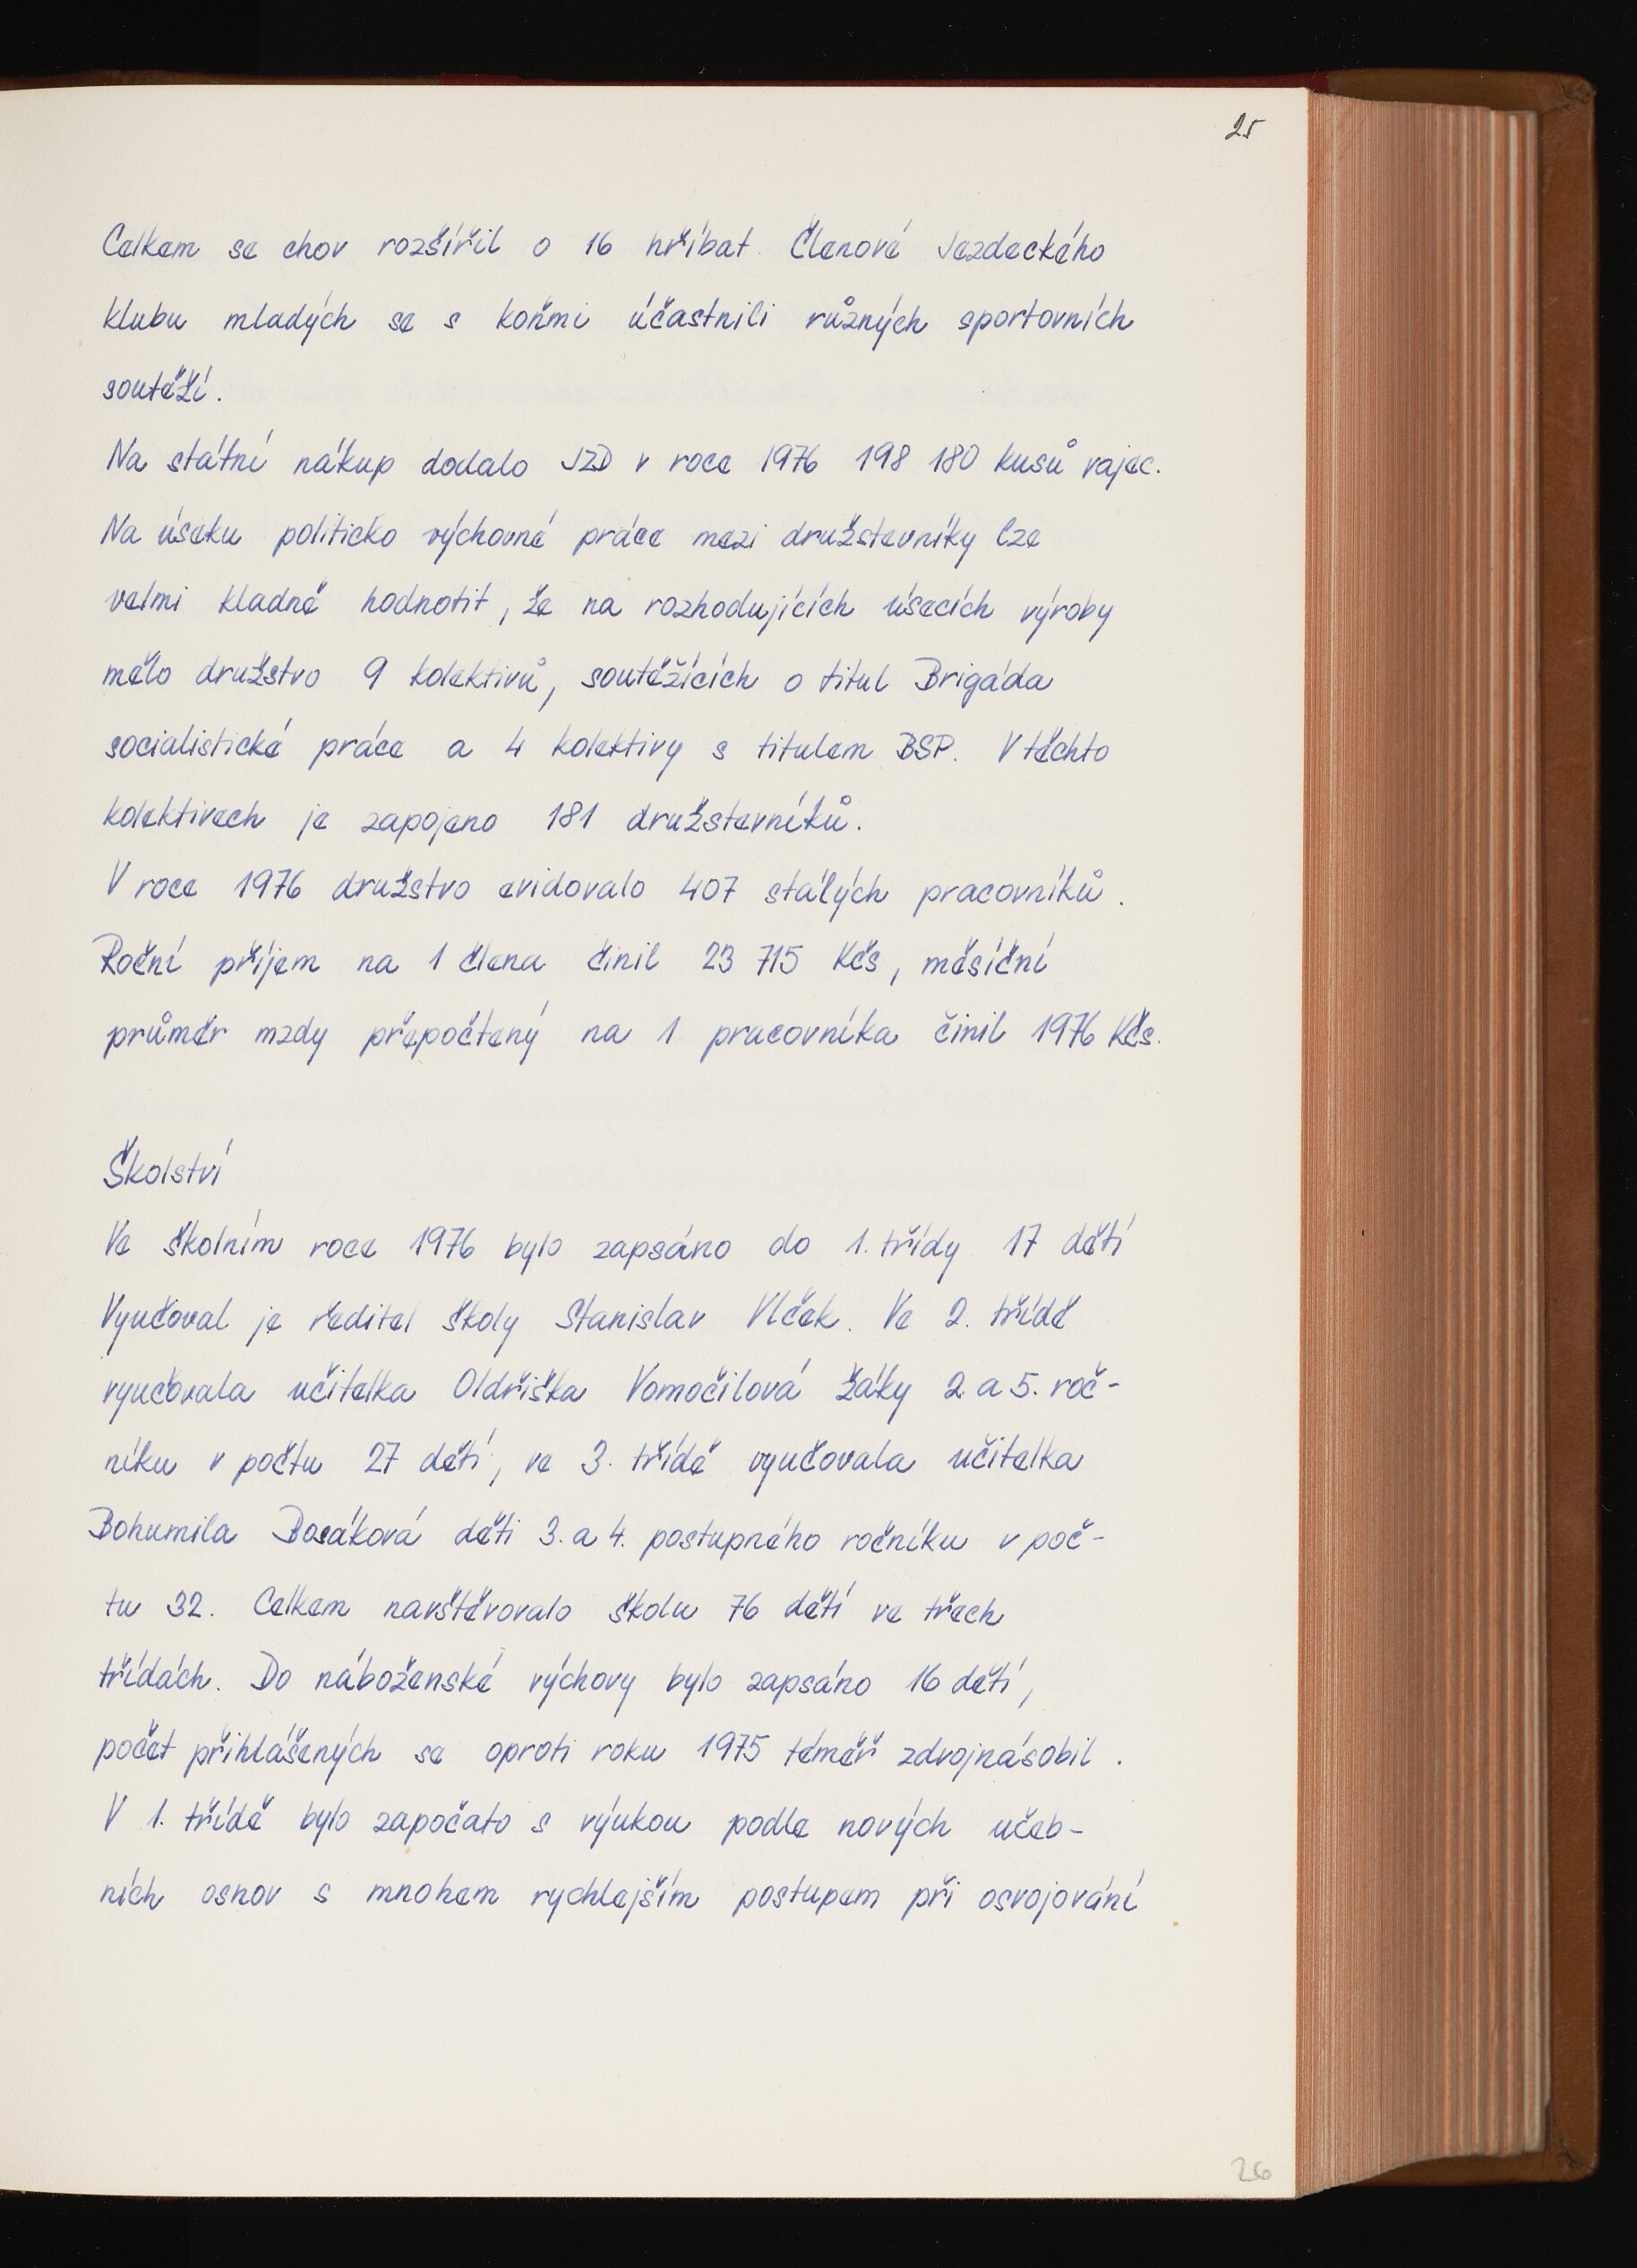 25
Celkem se chov rozšířil o 16 hříbat. Členové Jezdeckého
klubu mladých se s koňmi účastnili různých sportovních
soutěží.
Na státní nákup dodalo JZD v roce 1976 198 180 kusů vajec.
Na úseku politicko výchovné práce mezi družstevníky lze
velmi kladně hodnotit, že na rozhodujících úsecích výroby
mělo družstvo 9 kolektivů, soutěžících o titul Brigáda
socialistické práce a 4 kolektivy s titulem BSP. V těchto
kolektivech je zapojeno 181 družstevníků.
V roce 1976 družstvo evidovalo 407 stálých pracovníků.
Roční příjem na 1 člena činil 23 715 Kčs, měsíční
průměr mzdy přepočtený na 1 pracovníka činil 1976 Kčs.
Školství
Ve školním roce 1976 bylo zapsáno do 1. třídy 17 dětí
Vyučoval je ředitel školy Stanislav Vlček. Ve 2. třídě
vyučovala učitelka Oldřiška Vomočilová žáky 2. a 5. roč-
níku v počtu 27 dětí, ve 3. třídě vyučovala učitelka
Bohumila Bosáková děti 3. a 4. postupného ročníku v poč-
tu 32. Celkem navštěvovalo školu 76 dětí ve třech
třídách. Do náboženské výchovy bylo zapsáno 16 dětí,
počet přihlášených se oproti roku 1975 téměř zdvojnásobil.
V 1. třídě bylo započato s výukou podle nových učeb-
ních osnov s mnohem rychlejším postupem při osvojování
26